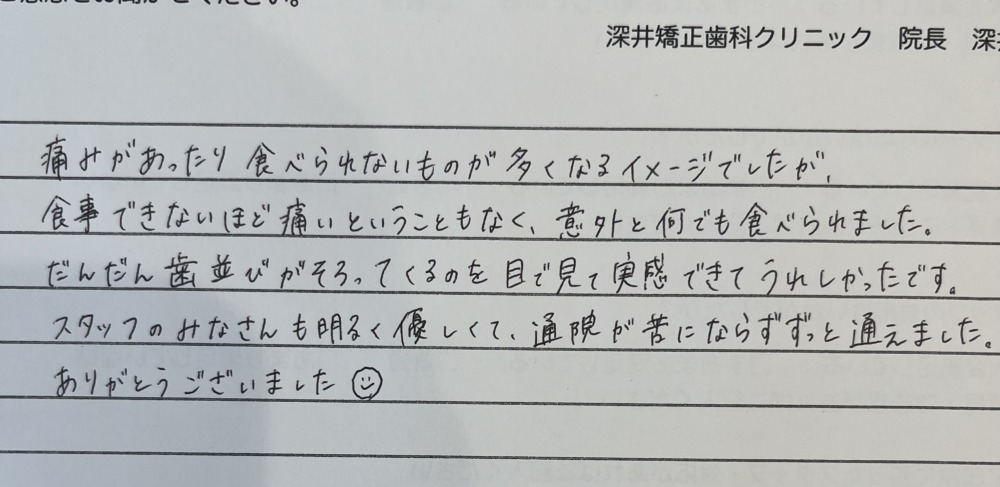 深井矯正歯科クリニック　院長　深
痛みがあったり食べられないものが多くなるイメージでしたが、
食事できないほど痛いということもなく、意外と何でも食べられました。
だんだん歯並びがそろってくるのを目で見て実感できてうれしかったです。
スタッフのみなさんも明るく優しくて、通院が苦にならずずっと通えました。
ありがとうございました☺